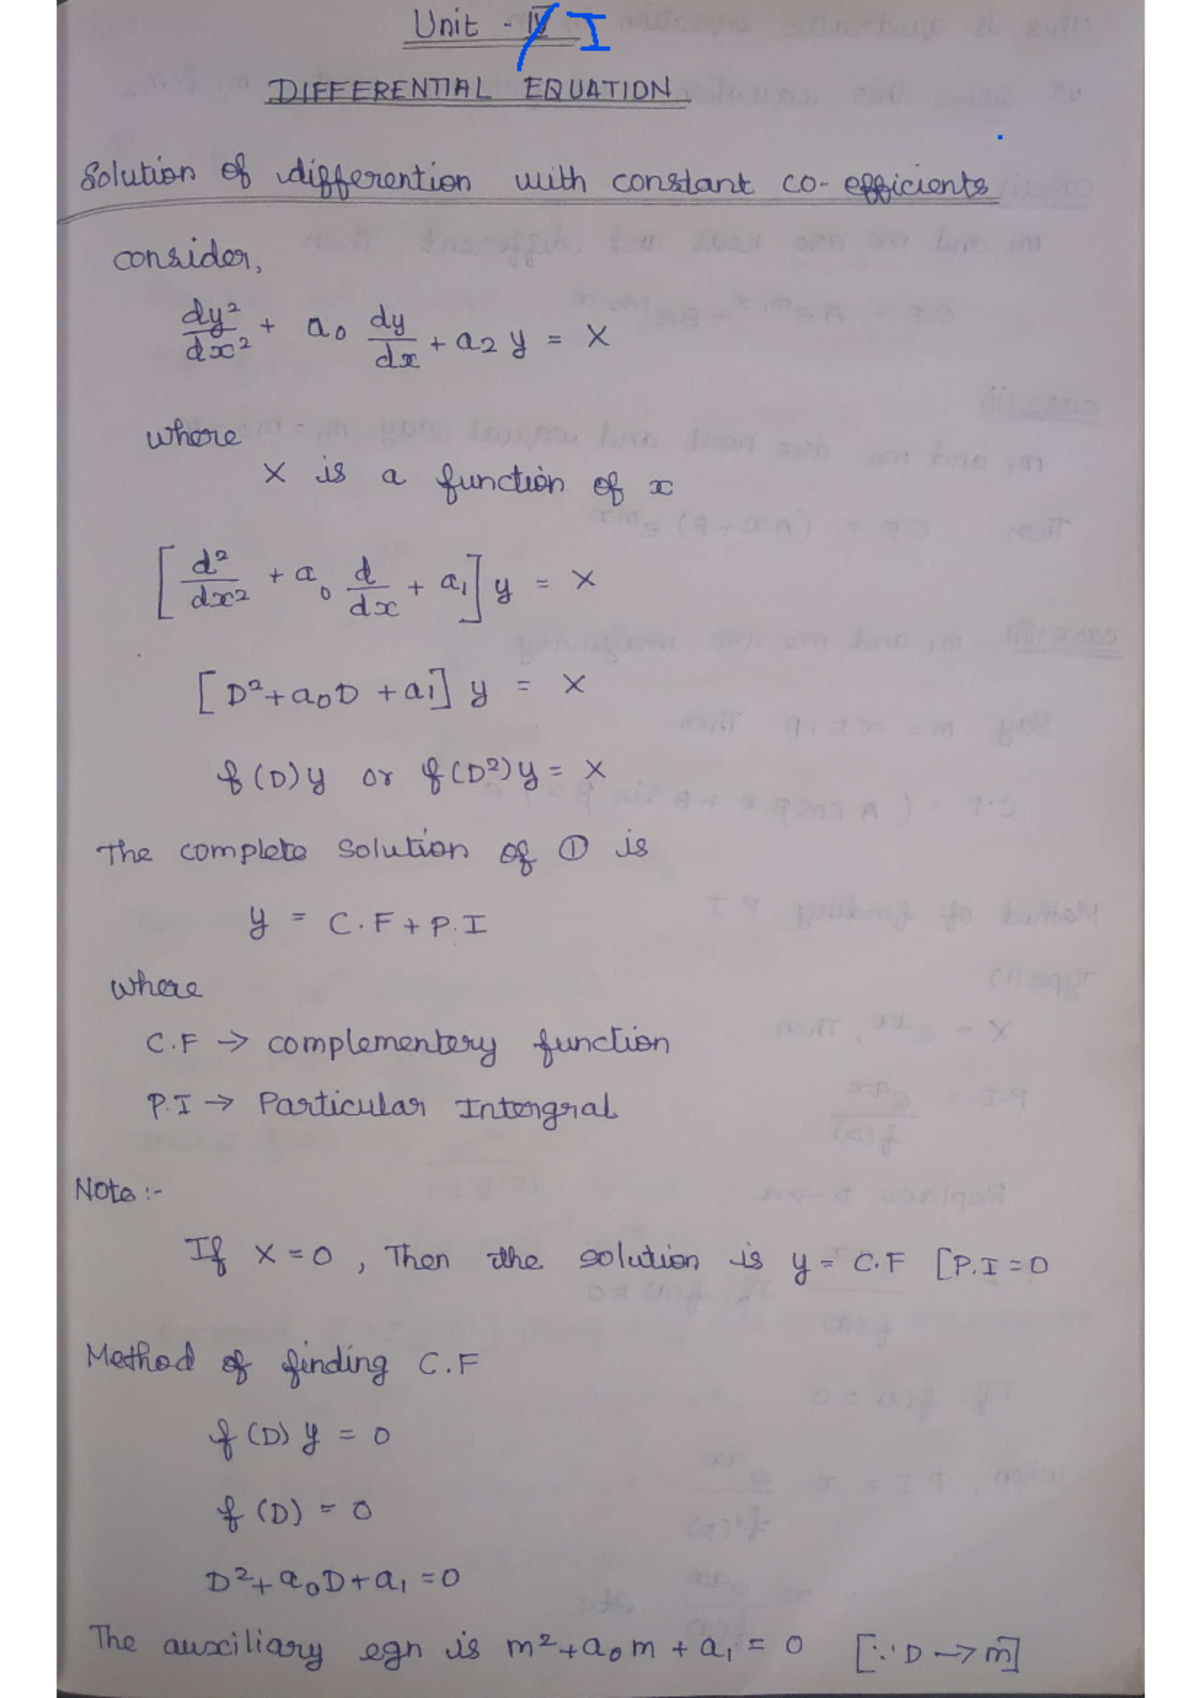 Unit - IV I
DIFFERENTIAL EQUATION
Solution of differention with constant co-efficients
consider,
dy²/dx² + a₀ dy/dx + a₂ y = X
where
X is a function of x
[d²/dx² + a₀ d/dx + a₁] y = X
[D²+a₀D +a₁] y = X
f(D)y or f(D²)y = X
The complete solution of ① is
y = C.F + P.I
where
C.F → complementery function
P.I → Particular Intengral
Note :-
If X = 0 , Then the solution is y = C.F [P.I = 0
Method of finding C.F
f(D) y = 0
f(D) = 0
D²+a₀D+a₁ = 0
The auxciliary eqn is m²+a₀m + a₁ = 0 [∵ D → m]